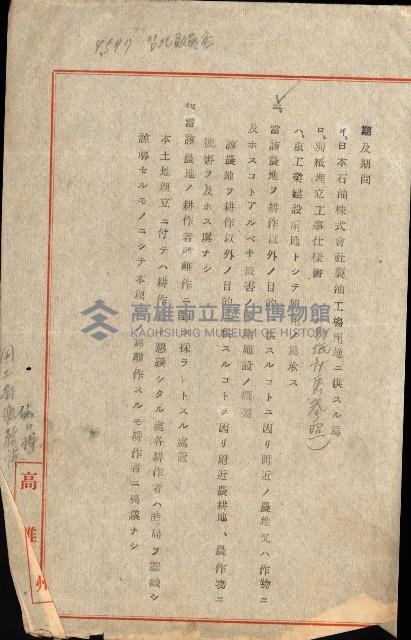 4,597 台北
期及期間
イ、日本石油株式會社製油工場用地ニ供スル爲
ロ、別紙埋立工事仕様書
ハ、重工業建設用地トシテ
當該農地ヲ耕作以外ノ目的ニ供スルコトニ因リ附近ノ農地又ハ作物ニ
及ホスコトアルベキ被害ノ防除施設ノ概要
該農地ヲ耕作以外ノ目的ニ供スルコトニ因リ附近農耕地、農作物ニ
被害ヲ及ホス虞ナシ
當該農地ノ耕作者 離作ニ 採ラントスル處置
本土地埋立ニ付テハ耕作 懇談シタル處各耕作者ハ時局ヲ認識シ
諒解セルモノニシテ本 爲離作スルモ耕作者ニ異議ナシ
高雄州
高雄市立歷史博物館
KAOHSIUNG MUSEUM OF HISTORY